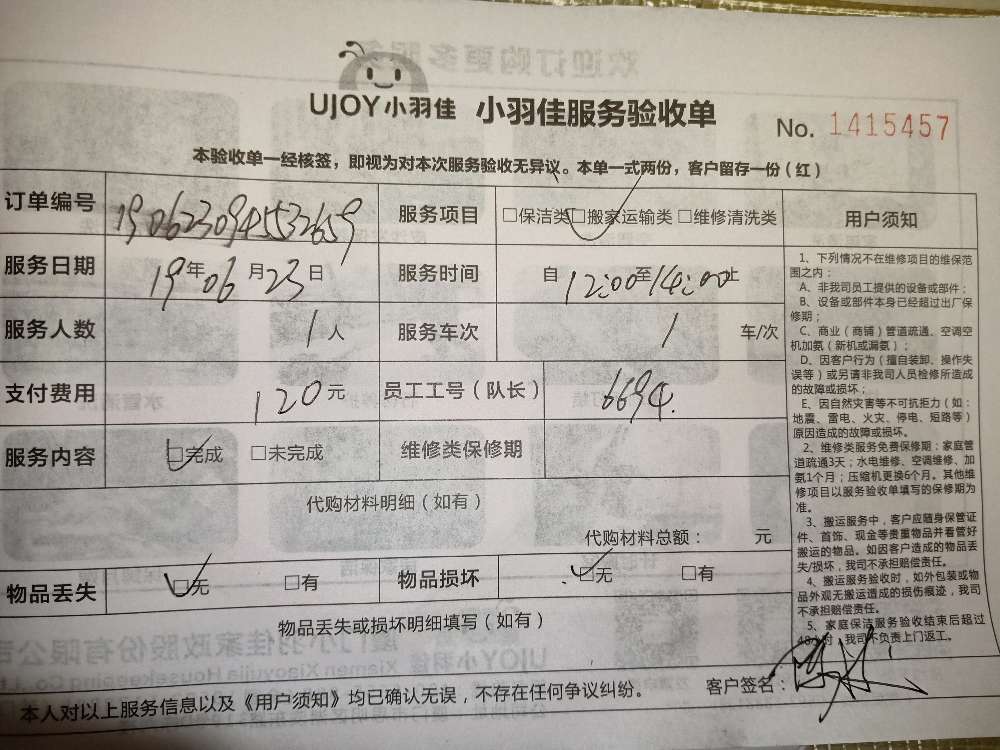 UJOY小羽佳 小羽佳服务验收单 No. 1415457
本验收单一经核签，即视为对本次服务验收无异议。本单一式两份，客户留存一份（红）
订单编号 19062309455532659 服务项目 □保洁类 □搬家运输类 □维修清洗类
服务日期 19年06月23日 服务时间 自12:00至14:00止
服务人数 1人 服务车次 1 车/次
支付费用 120元 员工工号（队长） 6694.
服务内容 □完成 □未完成 维修类保修期
代购材料明细（如有）
代购材料总额： 元
物品丢失 □无 □有 物品损坏 □无 □有
物品丢失或损坏明细填写（如有）
本人对以上服务信息以及《用户须知》均已确认无误，不存在任何争议纠纷。 客户签名：
用户须知
1、下列情况不在维修项目的维保范
围之内：
A、非我司员工提供的设备或部件；
B、设备或部件本身已经超过出厂保
修期；
C、商业（商铺）管道疏通、空调空
机加氨（新机或漏氨）；
D、因客户行为（擅自装卸、操作失
误等）或另请非我司人员检修所造成
的故障或损坏；
E、因自然灾害等不可抗拒力（如：
地震、雷电、火灾、停电、短路等）
原因造成的故障或损坏。
2、维修类服务免费保修期：家庭管
道疏通3天；水电维修、空调维修、加
氨1个月；压缩机更换6个月。其他维
修项目以服务验收单填写的保修期为
准。
3、搬运服务中，客户应随身保管证
件、首饰、现金等贵重物品并看管好
搬运的物品。如因客户造成的物品丢
失/损坏，我司不承担赔偿责任。
4、搬运服务验收时，如外包装或物
品外观无搬运造成的损伤痕迹，我司
不承担赔偿责任。
5、家庭保洁服务验收结束后超过
48小时，我司不负责上门返工。